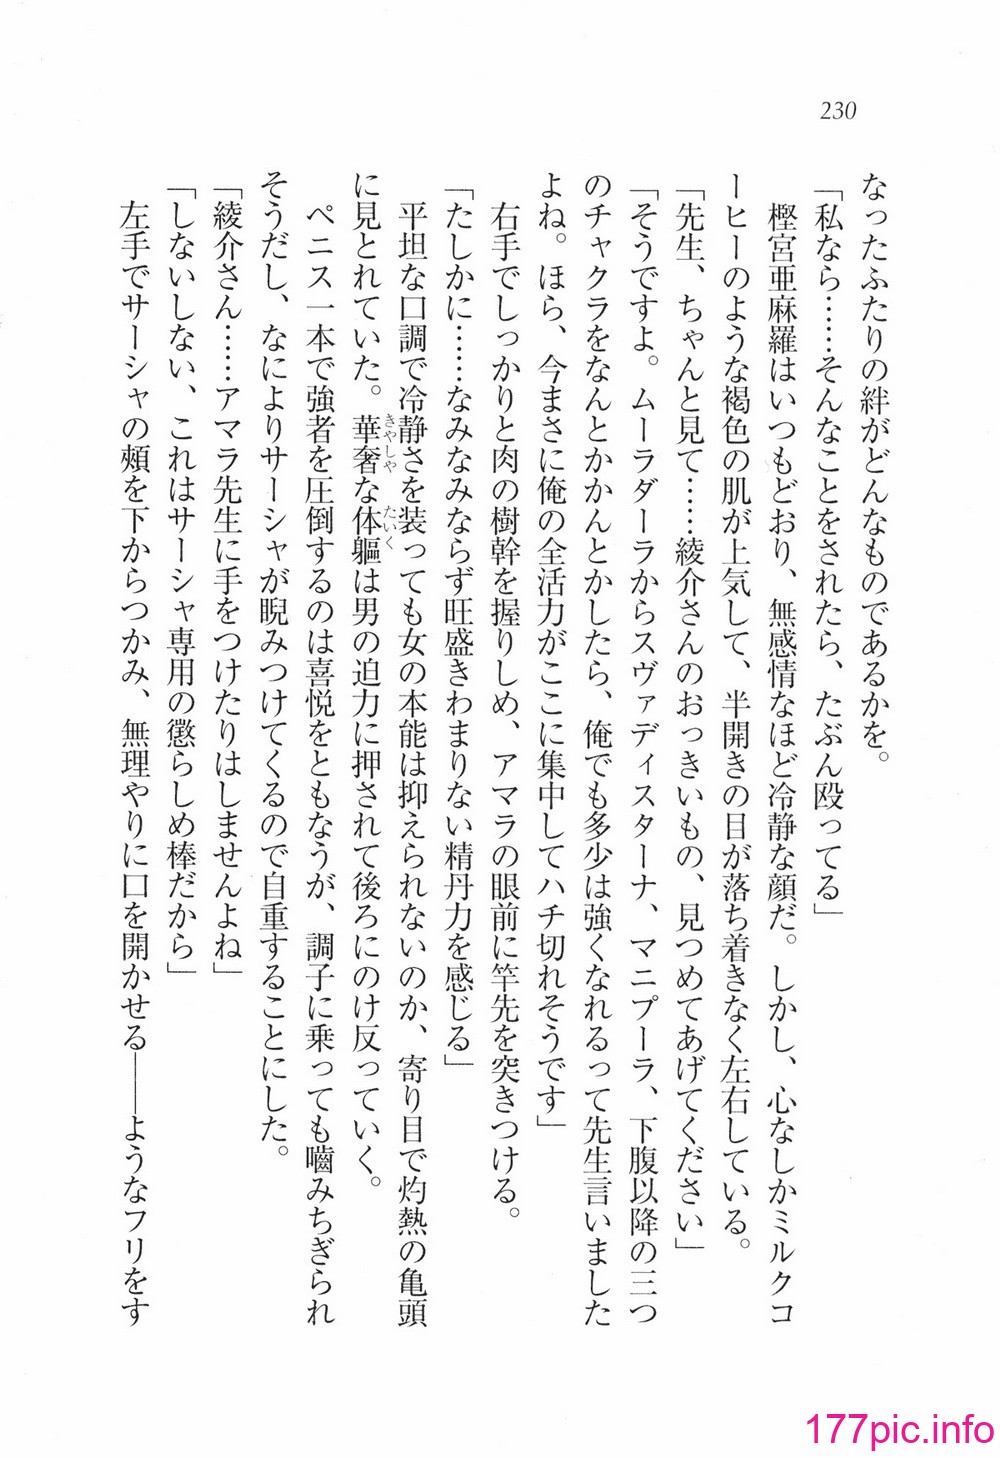 230
なったふたりの絆がどんなものであるかを。
「私なら……そんなことをされたら、たぶん殴ってる」
樫宮亜麻羅はいつもどおり、無感情なほど冷静な顔だ。しかし、心なしかミルクコ
ーヒーのような褐色の肌が上気して、半開きの目が落ち着きなく左右している。
「先生、ちゃんと見て……綾介さんのおっきいもの、見つめてあげてください」
「そうですよ。ムーラダーラからスヴァディスターナ、マニプーラ、下腹以降の三つ
のチャクラをなんとかかんとかしたら、俺でも多少は強くなれるって先生言いました
よね。ほら、今まさに俺の全活力がここに集中してハチ切れそうです」
右手でしっかりと肉の樹幹を握りしめ、アマラの眼前に竿先を突きつける。
「たしかに……なみなみならず旺盛きわまりない精丹力を感じる」
平坦な口調で冷静さを装っても女の本能は抑えられないのか、寄り目で灼熱の亀頭
に見とれていた。華奢きゃしゃな体軀たいくは男の迫力に押されて後ろにのけ反っていく。
ペニス一本で強者を圧倒するのは喜悦をともなうが、調子に乗っても嚙みちぎられ
そうだし、なによりサーシャが睨みつけてくるので自重することにした。
「綾介さん……アマラ先生に手をつけたりはしませんよね」
「しないしない、これはサーシャ専用の懲らしめ棒だから」
左手でサーシャの頰を下からつかみ、無理やりに口を開かせる――ようなフリをす
177pic.info